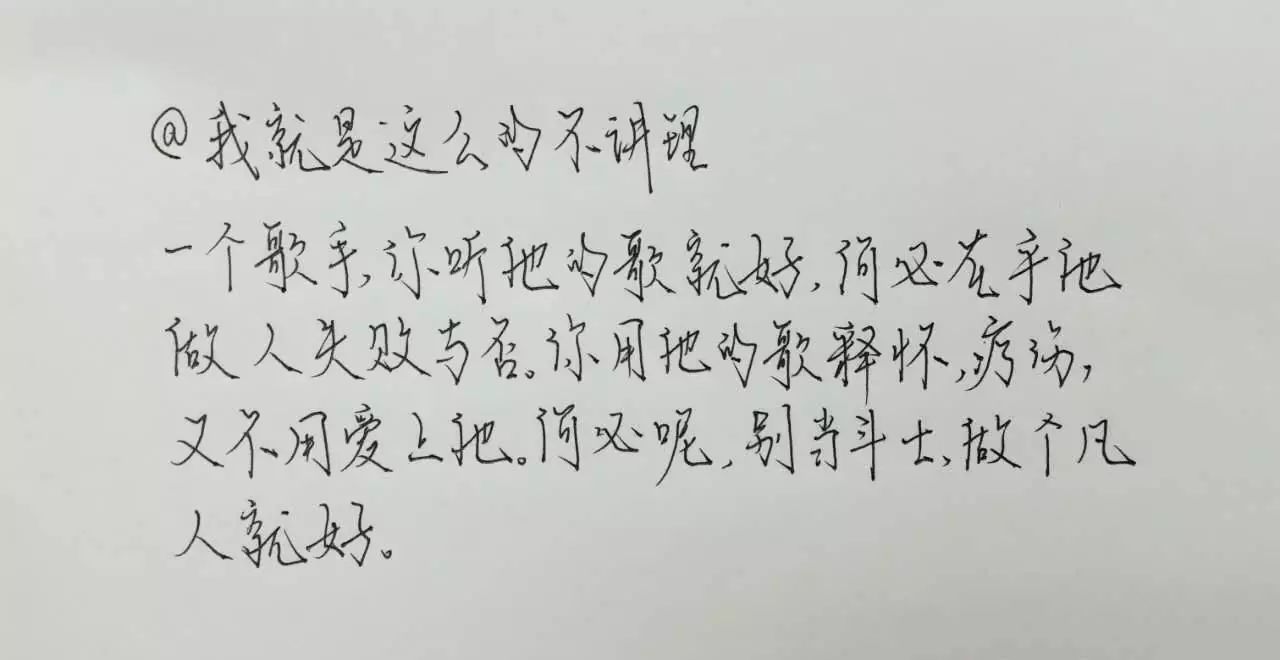 @我就是这么的不讲理
一个歌手,你听他的歌就好,何必在乎他
做人失败与否。你用他的歌释怀,疗伤,
又不用爱上他。何必呢,别当斗士,做个凡
人就好。